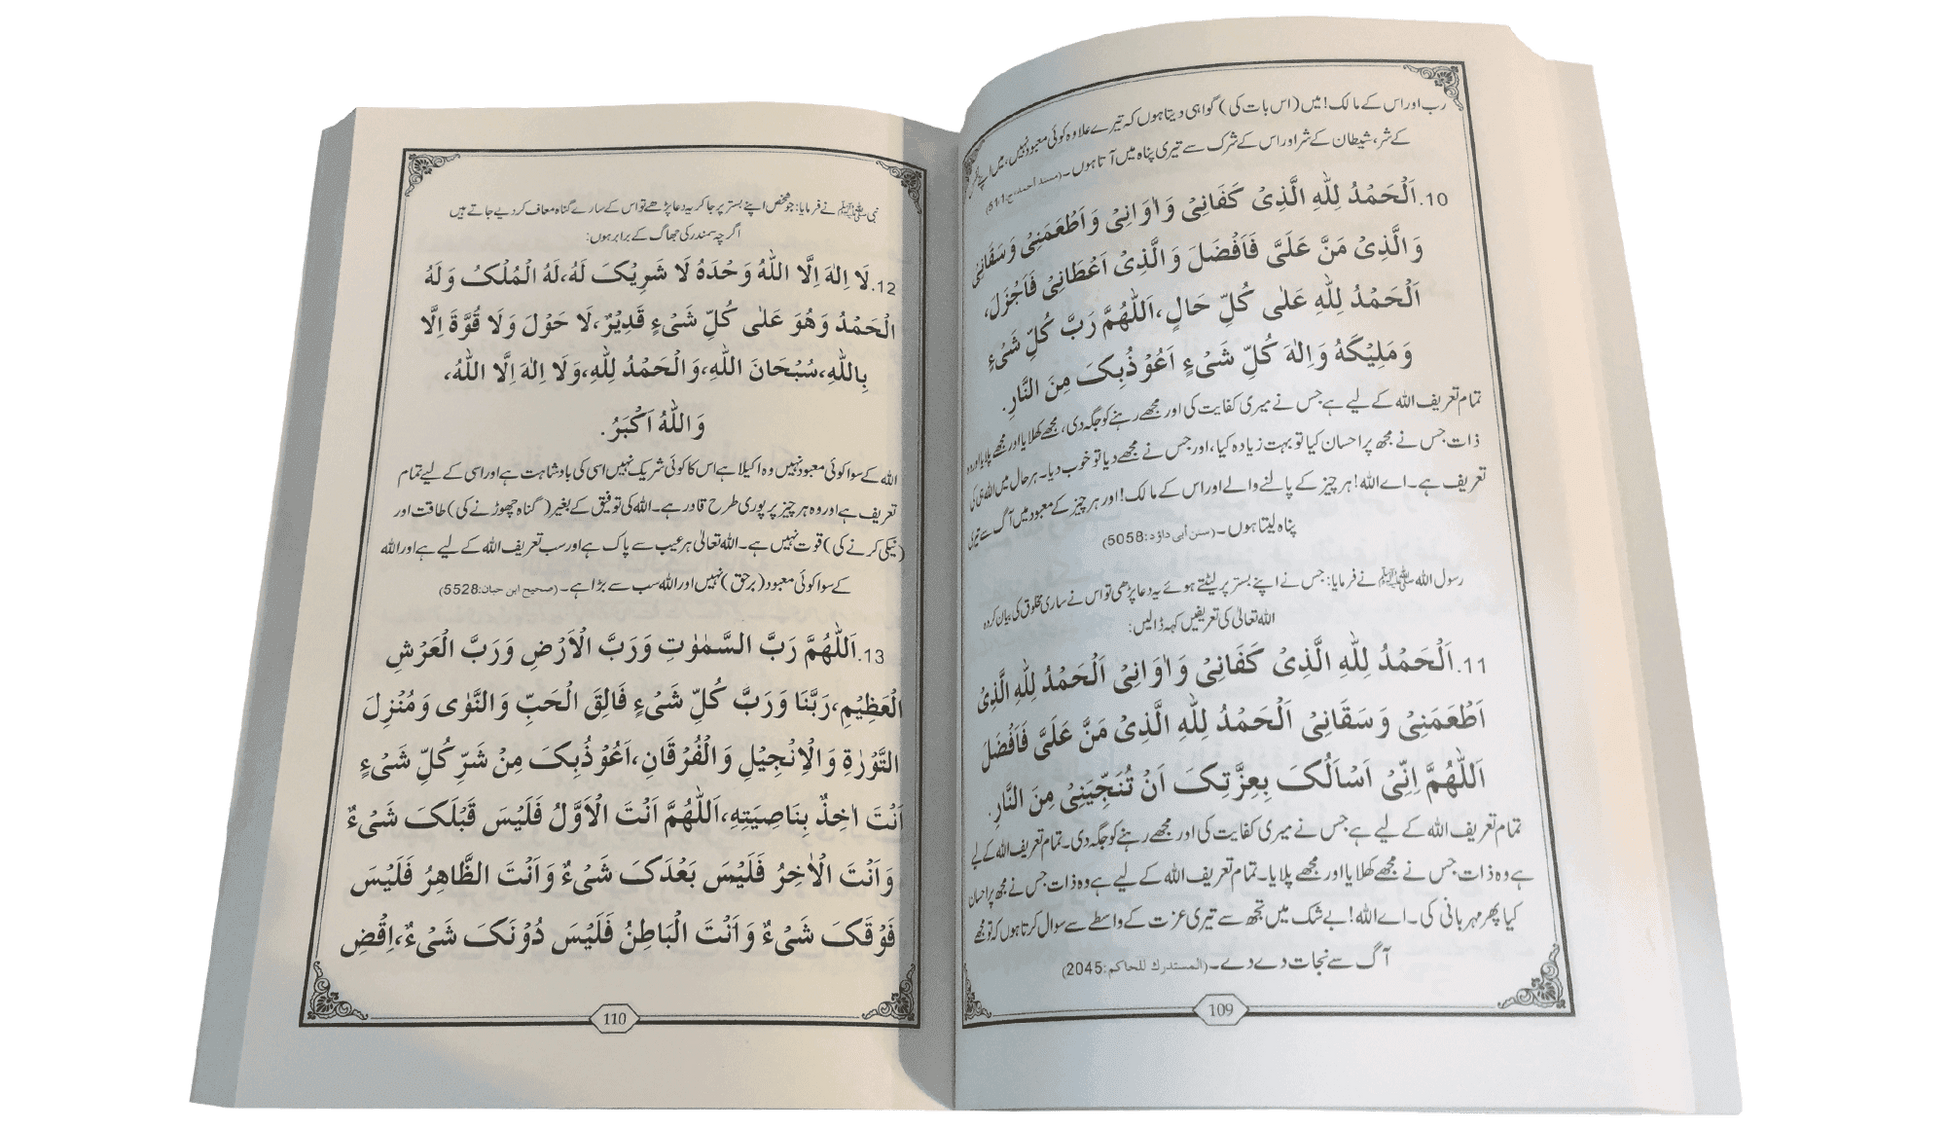 رب اور اس کے مالک! میں (اس بات کی) گواہی دیتا ہوں کہ تیرے علاوہ کوئی معبود نہیں، میں اپنے
کے شر، شیطان کے شر اور اس کے شرک سے تیری پناہ میں آتا ہوں۔ (مسند أحمد، ج:11،5)
10. اَلْحَمْدُ لِلّٰهِ الَّذِىْ كَفَانِىْ وَاٰوَانِىْ وَاَطْعَمَنِىْ وَسَقَانِىْ
وَالَّذِىْ مَنَّ عَلَىَّ فَاَفْضَلَ وَالَّذِىْ اَعْطَانِىْ فَاَجْزَلَ،
اَلْحَمْدُ لِلّٰهِ عَلٰى كُلِّ حَالٍ،اَللّٰهُمَّ رَبَّ كُلِّ شَىْءٍ
وَمَلِيْكَهُ وَاِلٰهَ كُلِّ شَىْءٍ اَعُوْذُبِكَ مِنَ النَّارِ.
تمام تعریف اللہ کے لیے ہے جس نے میری کفایت کی اور مجھے رہنے کو جگہ دی، مجھے کھلایا اور مجھے پلایا اور وہ
ذات جس نے مجھ پر احسان کیا تو بہت زیادہ کیا، اور جس نے مجھے دیا تو خوب دیا۔ ہر حال میں اللہ ہی کی
تعریف ہے۔ اے اللہ! ہر چیز کے پالنے والے اور اس کے مالک! اور ہر چیز کے معبود میں آگ سے تیری
پناہ لیتا ہوں۔ (سنن أبى داؤد:5058)
رسول اللہ ﷺ نے فرمایا: جس نے اپنے بستر پر لیٹتے ہوئے یہ دعا پڑھی تو اس نے ساری مخلوق کی بیان کردہ
اللہ تعالیٰ کی تعریفیں کہہ ڈالیں:
11. اَلْحَمْدُ لِلّٰهِ الَّذِىْ كَفَانِىْ وَاٰوَانِىْ اَلْحَمْدُ لِلّٰهِ الَّذِىْ
اَطْعَمَنِىْ وَسَقَانِىْ اَلْحَمْدُ لِلّٰهِ الَّذِىْ مَنَّ عَلَىَّ فَاَفْضَلَ
اَللّٰهُمَّ اِنِّىْ اَسْاَلُكَ بِعِزَّتِكَ اَنْ تُنَجِّيَنِىْ مِنَ النَّارِ.
تمام تعریف اللہ کے لیے ہے جس نے میری کفایت کی اور مجھے رہنے کو جگہ دی۔ تمام تعریف اللہ کے لیے
ہے وہ ذات جس نے مجھے کھلایا اور مجھے پلایا۔ تمام تعریف اللہ کے لیے ہے وہ ذات جس نے مجھ پر احسان
کیا پھر مہربانی کی۔ اے اللہ! بے شک میں تجھ سے تیری عزت کے واسطے سے سوال کرتا ہوں کہ تو مجھے
آگ سے نجات دے دے۔ (المستدرك للحاكم:2045)
109
نبی ﷺ نے فرمایا: جو شخص اپنے بستر پر جا کر یہ دعا پڑھے تو اس کے سارے گناہ معاف کر دیے جاتے ہیں
اگرچہ سمندر کی جھاگ کے برابر ہوں:
12. لَا اِلٰهَ اِلَّا اللّٰهُ وَحْدَهُ لَا شَرِيْكَ لَهُ،لَهُ الْمُلْكُ وَلَهُ
الْحَمْدُ وَهُوَ عَلٰى كُلِّ شَىْءٍ قَدِيْرٌ،لَا حَوْلَ وَلَا قُوَّةَ اِلَّا
بِاللّٰهِ،سُبْحَانَ اللّٰهِ،وَالْحَمْدُ لِلّٰهِ،وَلَا اِلٰهَ اِلَّا اللّٰهُ،
وَاللّٰهُ اَكْبَرُ.
اللہ کے سوا کوئی معبود نہیں وہ اکیلا ہے اس کا کوئی شریک نہیں اسی کی بادشاہت ہے اور اسی کے لیے تمام
تعریف ہے اور وہ ہر چیز پر پوری طرح قادر ہے۔ اللہ کی توفیق کے بغیر (گناہ چھوڑنے کی) طاقت اور
(نیکی کرنے کی) قوت نہیں ہے۔ اللہ تعالیٰ ہر عیب سے پاک ہے اور سب تعریف اللہ کے لیے ہے اور اللہ
کے سوا کوئی معبود (برحق) نہیں اور اللہ سب سے بڑا ہے۔ (صحيح ابن حبان:5528)
13. اَللّٰهُمَّ رَبَّ السَّمٰوٰتِ وَرَبَّ الْاَرْضِ وَرَبَّ الْعَرْشِ
الْعَظِيْمِ،رَبَّنَا وَرَبَّ كُلِّ شَىْءٍ فَالِقَ الْحَبِّ وَالنَّوٰى وَمُنْزِلَ
التَّوْرٰةِ وَالْاِنْجِيْلِ وَالْفُرْقَانِ،اَعُوْذُبِكَ مِنْ شَرِّ كُلِّ شَىْءٍ
اَنْتَ اٰخِذٌ بِنَاصِيَتِهِ،اَللّٰهُمَّ اَنْتَ الْاَوَّلُ فَلَيْسَ قَبْلَكَ شَىْءٌ
وَاَنْتَ الْاٰخِرُ فَلَيْسَ بَعْدَكَ شَىْءٌ وَاَنْتَ الظَّاهِرُ فَلَيْسَ
فَوْقَكَ شَىْءٌ وَاَنْتَ الْبَاطِنُ فَلَيْسَ دُوْنَكَ شَىْءٌ،اِقْضِ
110